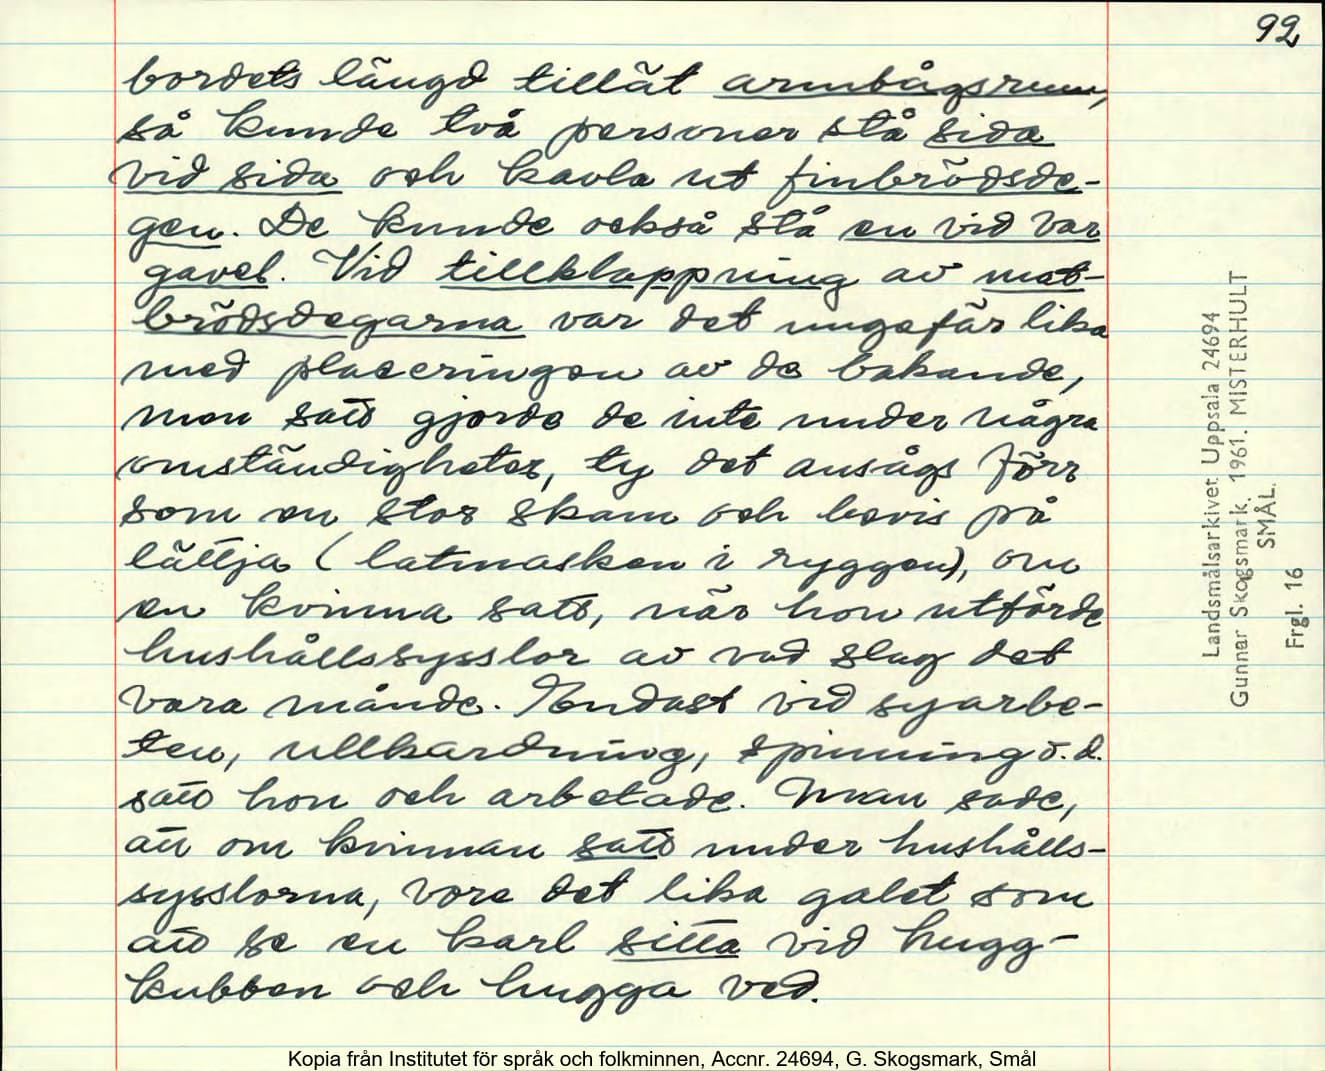 92
bordets längd tillät armbågsrum,
så kunde två personer stå sida
vid sida och kavla ut finbrödsde-
gen. De kunde också stå en vid var
gavel. Vid tillklappning av mat-
brödsdegarna var det ungefär lika
med placeringen av de bakande,
men satt gjorde de inte under några
omständigheter, ty det ansågs förr
som en stor skam och bevis på
lättja (latmasken i ryggen), om
en kvinna satt, när hon utförde
hushållssysslor av vad slag det
vara månde. Endast vid syarbe-
ten, ullkardning, spinning o.d.
satt hon och arbetade. Man sade,
att om kvinnan satt under hushålls-
sysslorna, vore det lika galet som
att se en karl sitta vid hugg-
kubben och hugga ved.
Landsmålsarkivet Uppsala 24694
Gunnar Skogsmark. 1961. MISTERHULT
SMÅL.
Frgl. 16
Kopia från Institutet för språk och folkminnen, Accnr. 24694, G. Skogsmark, Smål